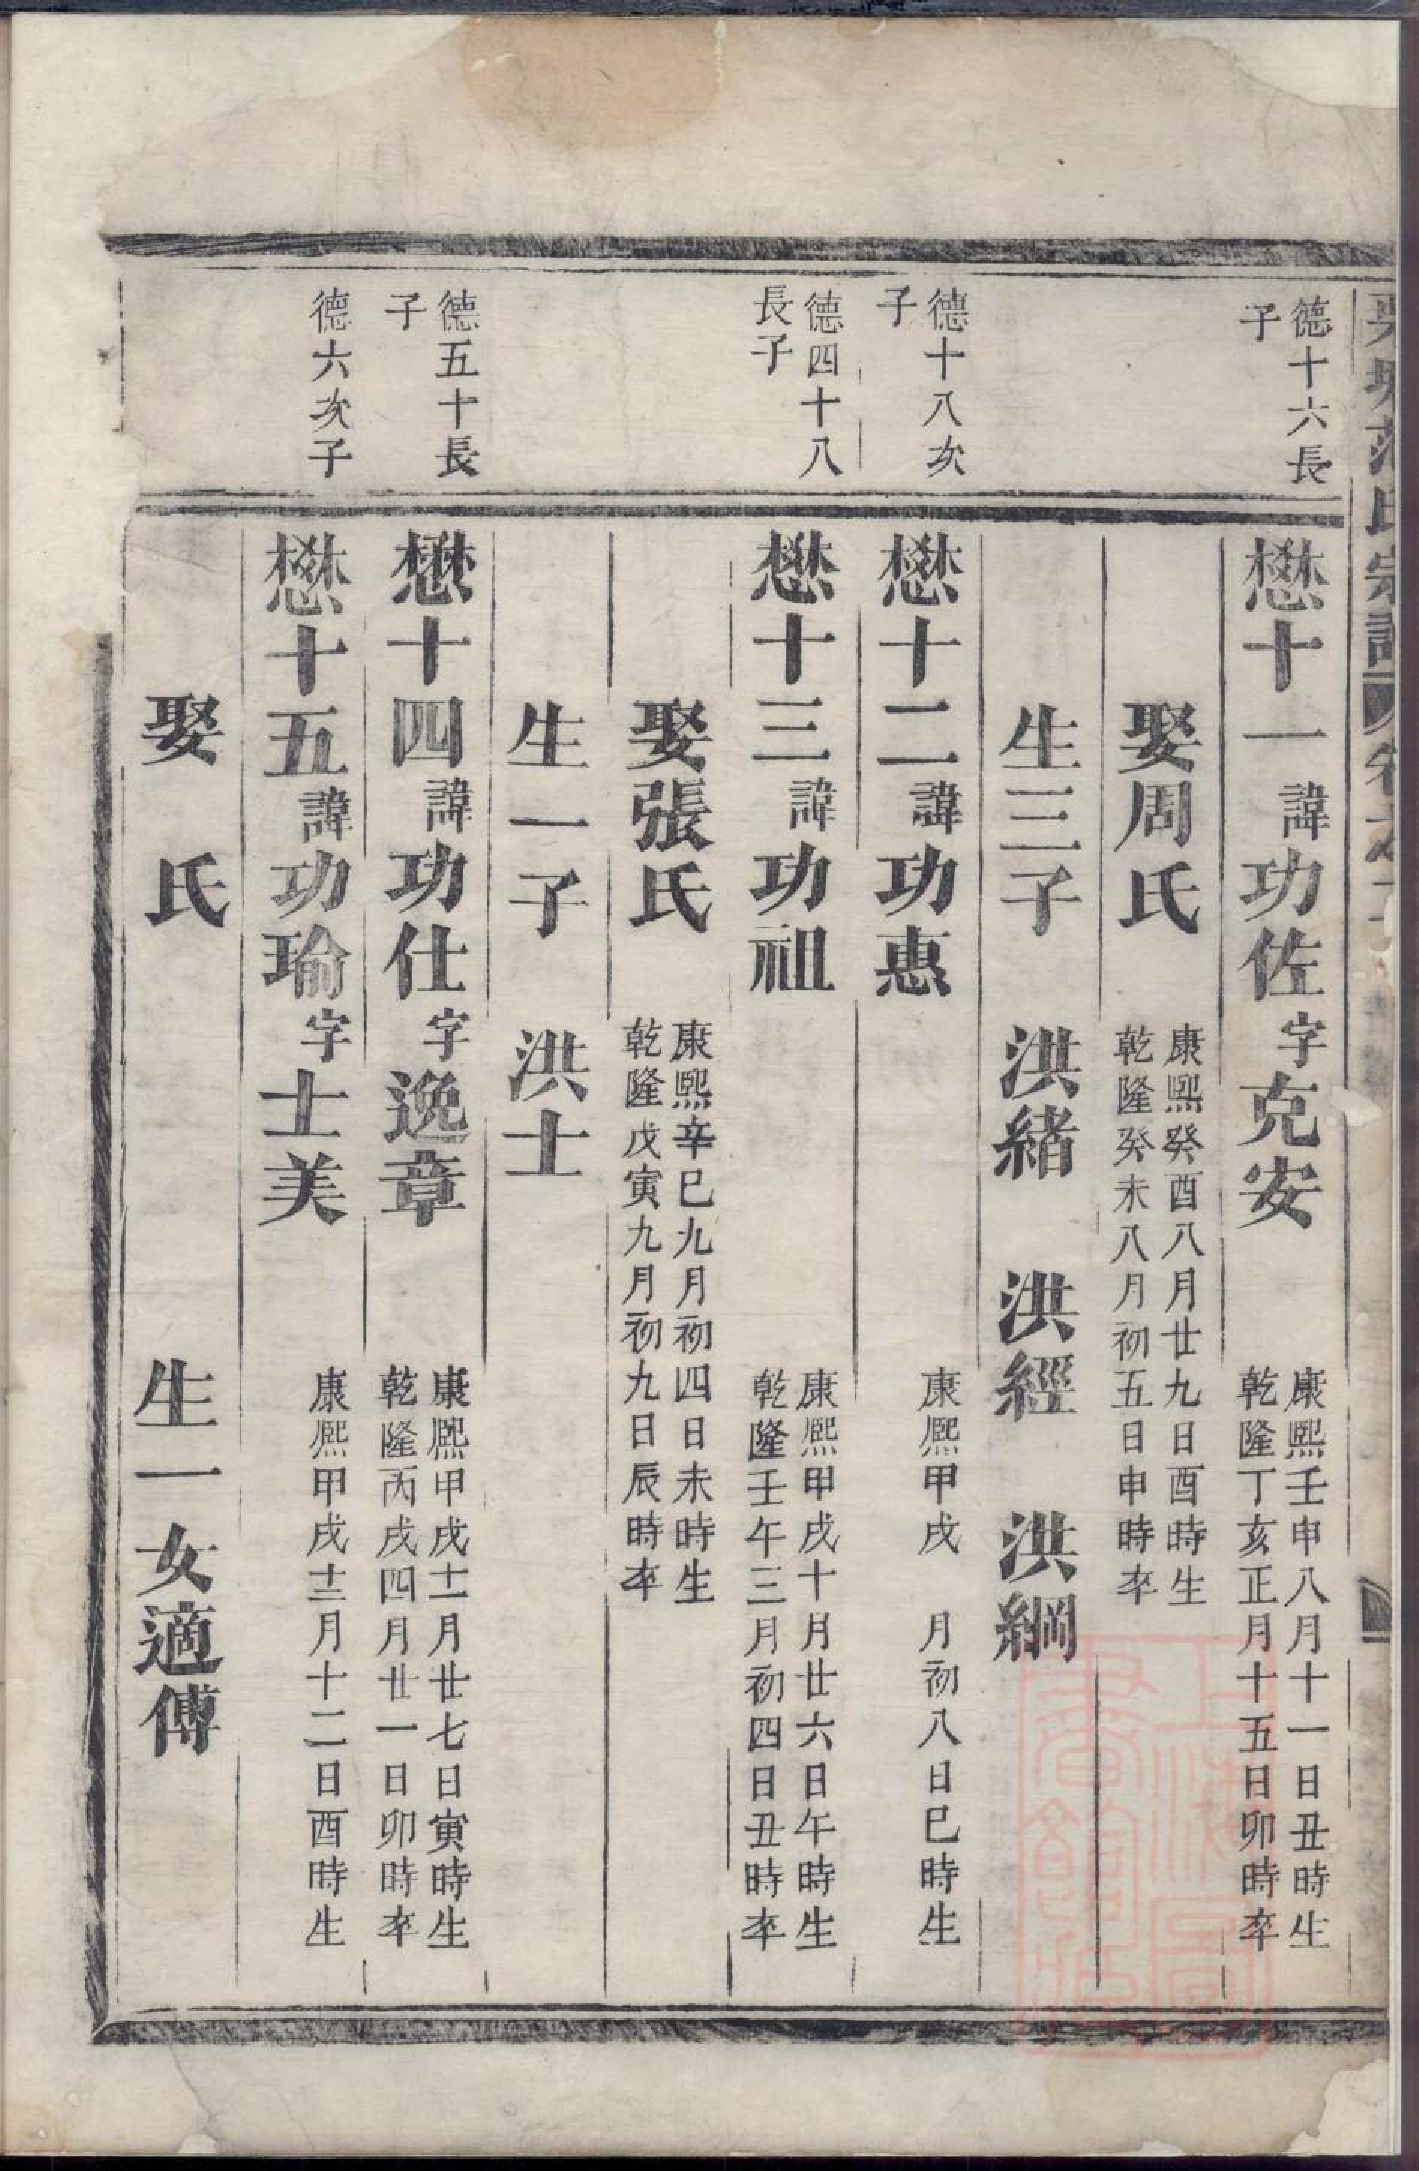 德十六長
子
懋十一諱功佐字克安
康熙壬申八月十一日丑時生
乾隆丁亥正月十五日卯時卒
娶周氏
康熙癸酉八月廿九日酉時生
乾隆癸未八月初五日申時卒
生三子 洪緒 洪經 洪綱
德十八次
子
懋十二諱功惠
康熙甲戌 月初八日巳時生
德四十八
長子
懋十三諱功祖
康熙甲戌十月廿六日午時生
乾隆壬午三月初四日丑時卒
娶張氏
康熙辛巳九月初四日未時生
乾隆戊寅九月初九日辰時卒
生一子 洪士
德五十長
子
懋十四諱功仕字逸章
康熙甲戌十一月廿七日寅時生
乾隆丙戌四月廿一日卯時卒
德六次子
懋十五諱功瑜字士美
康熙甲戌十二月十二日酉時生
娶 氏 生一女適傅
上海圖
書館藏